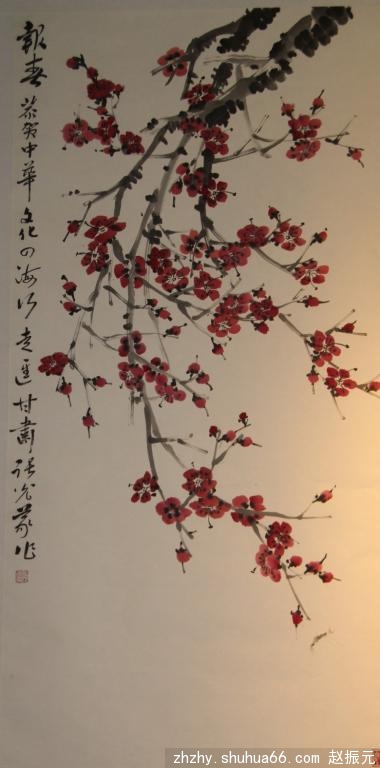 報春 恭贺中華文化四海行走進甘肅 張光蒙作
zhzhy.shuhua66.com 赵振元